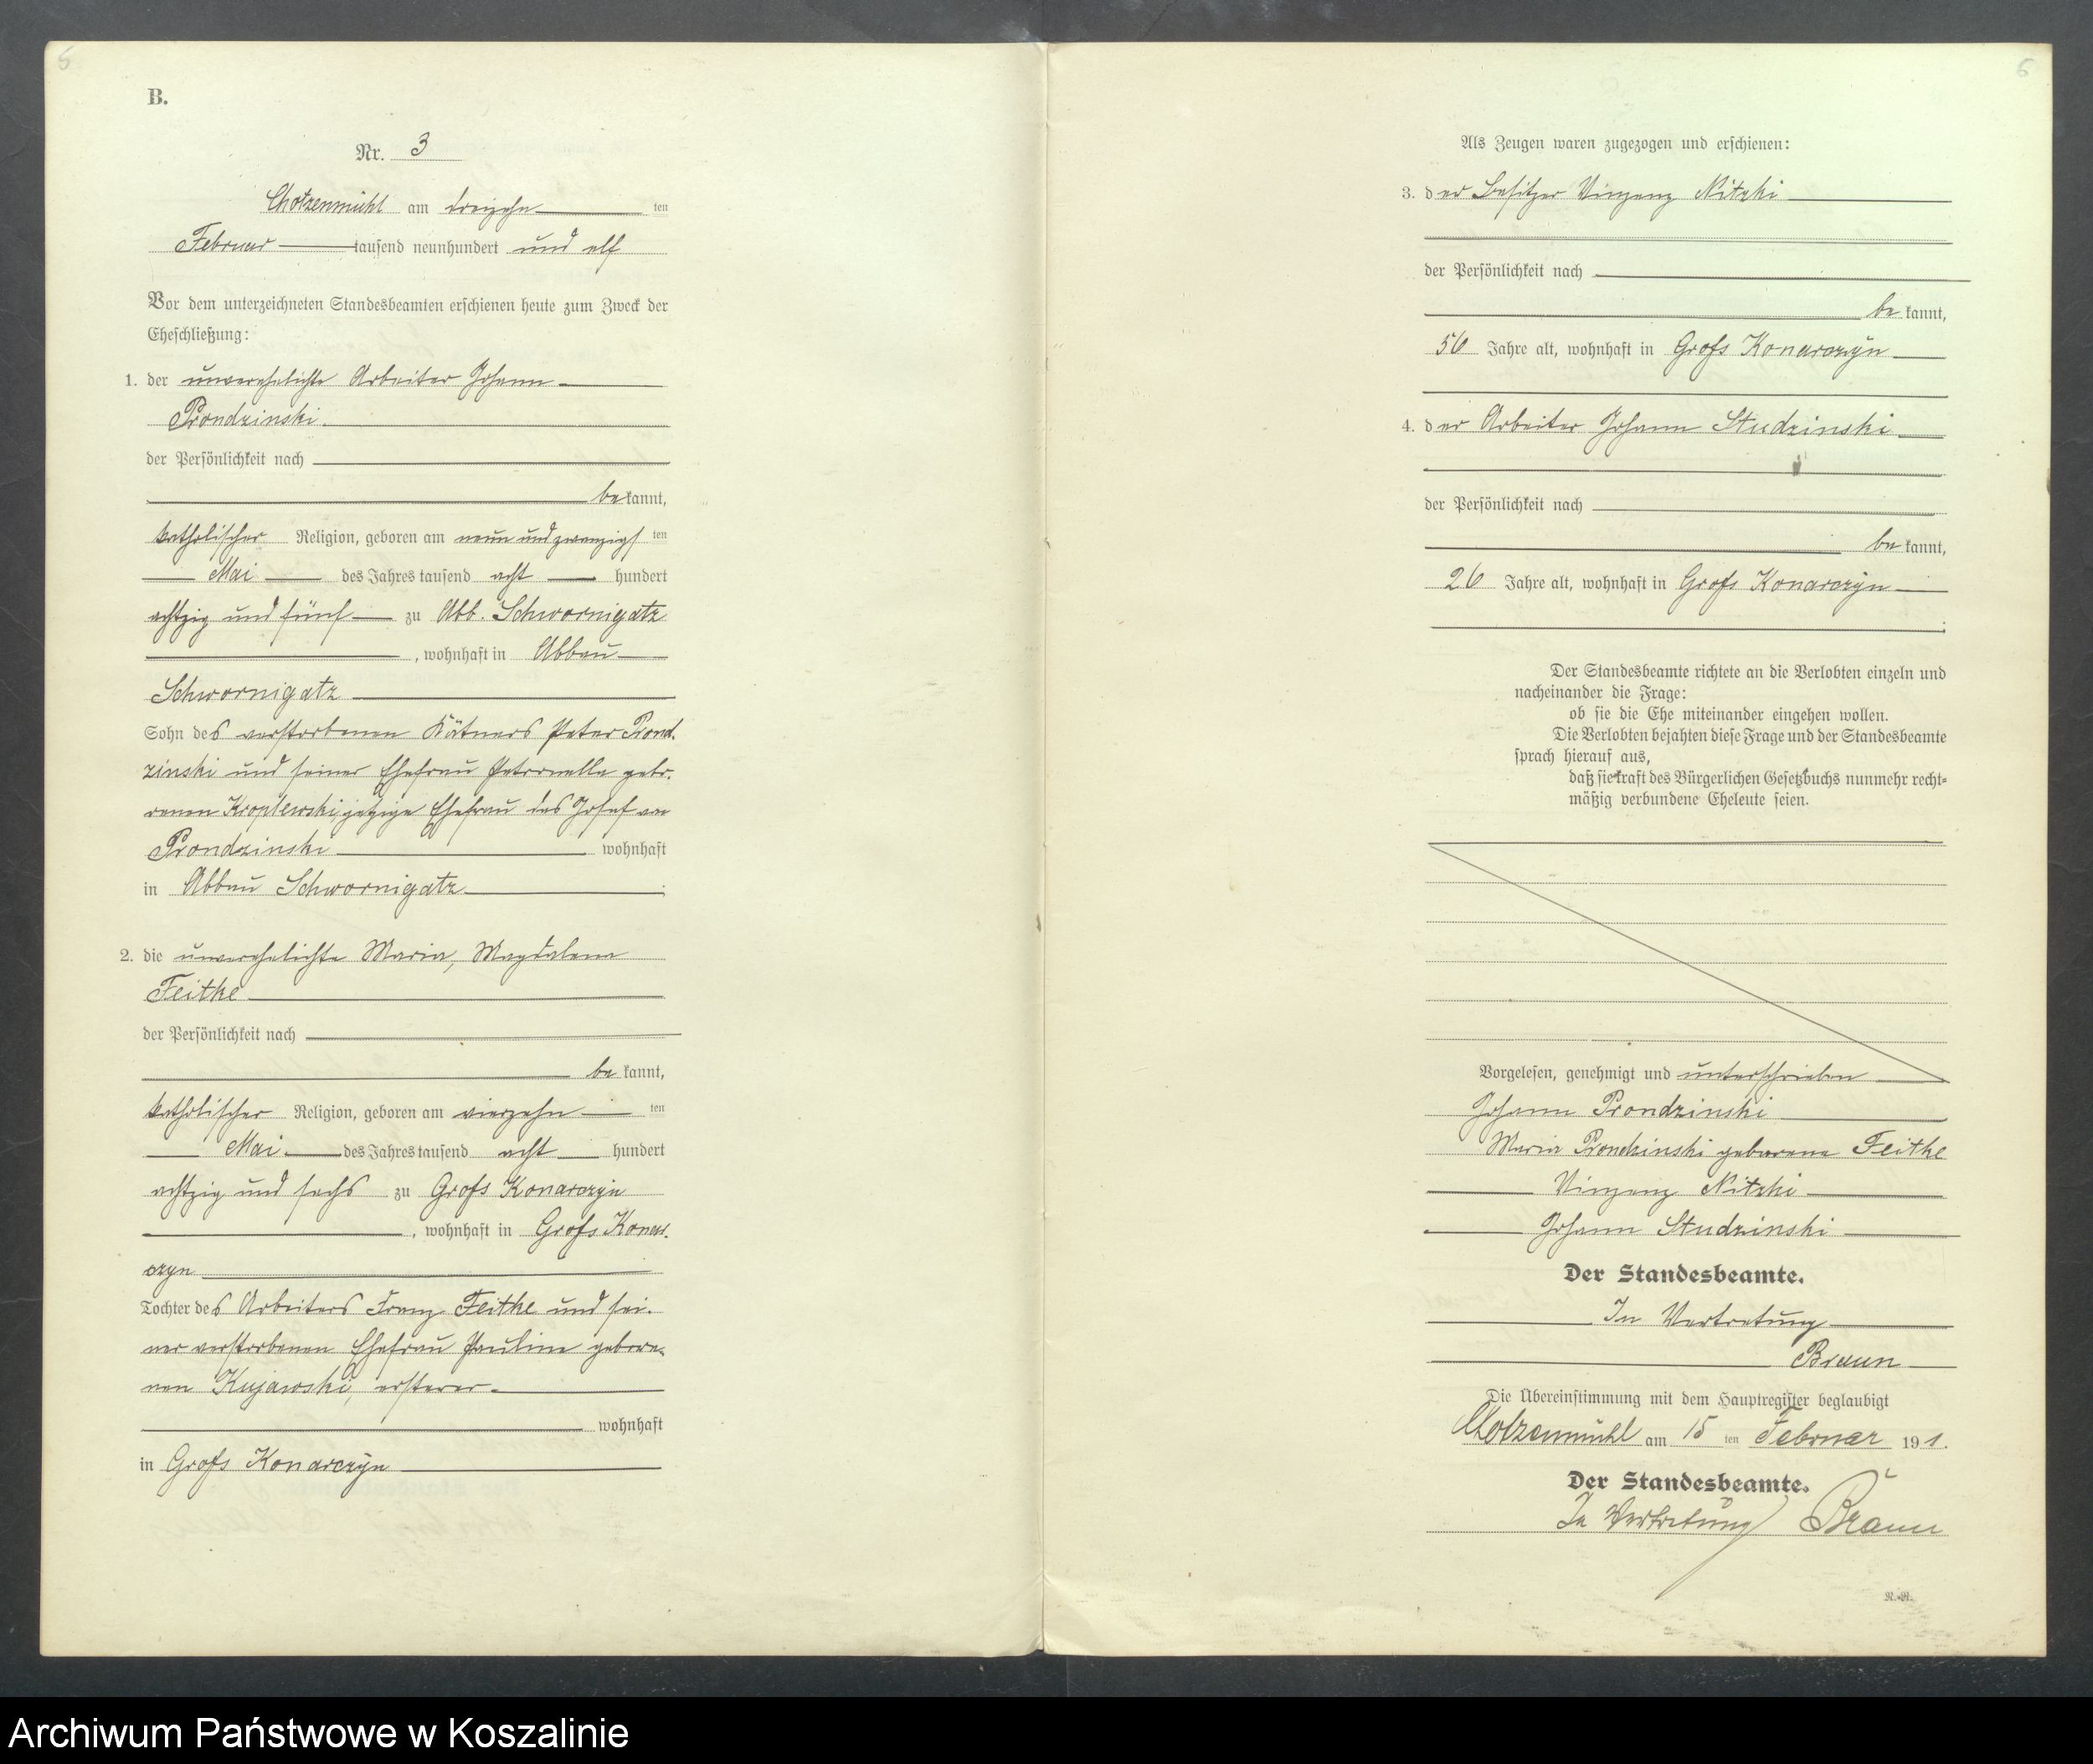 5
B.
Nr. 3
Chotzenmühl am dreizehn ten
Februar tausend neunhundert und elf
Vor dem unterzeichneten Standesbeamten erschienen heute zum Zweck der
Eheschließung:
1. der unverehelichte Arbeiter Johann
Prondzinski.
der Persönlichkeit nach
be kannt,
katholischer Religion, geboren am neun und zwanzigs ten
Mai des Jahres tausend acht hundert
achtzig und fünf zu Abb. Schwornigatz
, wohnhaft in Abbau
Schwornigatz
Sohn des verstorbenen Kätners Peter Prond-
zinski und seiner Ehefrau Petronella gebo-
renen Kroplewski, jetzige Ehefrau des Josef von
Prondzinski wohnhaft
in Abbau Schwornigatz ;
2. die unverehelichte Maria, Magdalena
Feitke
der Persönlichkeit nach
be kannt,
katholischer Religion, geboren am vierzehn ten
Mai des Jahres tausend acht hundert
achtzig und sechs zu Groß Konarczyn
, wohnhaft in Groß Konar-
czyn
Tochter des Arbeiters Franz Feitke und sei-
ner verstorbenen Ehefrau Pauline gebore-
nen Kujawski, ersterer
wohnhaft
in Groß Konarczyn
6
Als Zeugen waren zugezogen und erschienen:
3. der Besitzer Vinzenz Nitzki
der Persönlichkeit nach
be kannt,
56 Jahre alt, wohnhaft in Groß Konarczyn
4. der Arbeiter Johann Studzinski
der Persönlichkeit nach
be kannt,
26 Jahre alt, wohnhaft in Groß Konarczyn
.
Der Standesbeamte richtete an die Verlobten einzeln und
nacheinander die Frage:
ob sie die Ehe miteinander eingehen wollen.
Die Verlobten bejahten diese Frage und der Standesbeamte
sprach hierauf aus,
daß sie kraft des Bürgerlichen Gesetzbuchs nunmehr recht-
mäßig verbundene Eheleute seien.
Vorgelesen, genehmigt und unterschrieben
Johann Prondzinski
Maria Prondzinski geborene Feitke
Vinzenz Nitzki
Johann Studzinski
Der Standesbeamte.
In Vertretung
Braun
Die Übereinstimmung mit dem Hauptregister beglaubigt
Chotzenmühl am 15 ten Februar 191.
Der Standesbeamte.
In Vertretung Braun
R.-R.
Archiwum Państwowe w Koszalinie